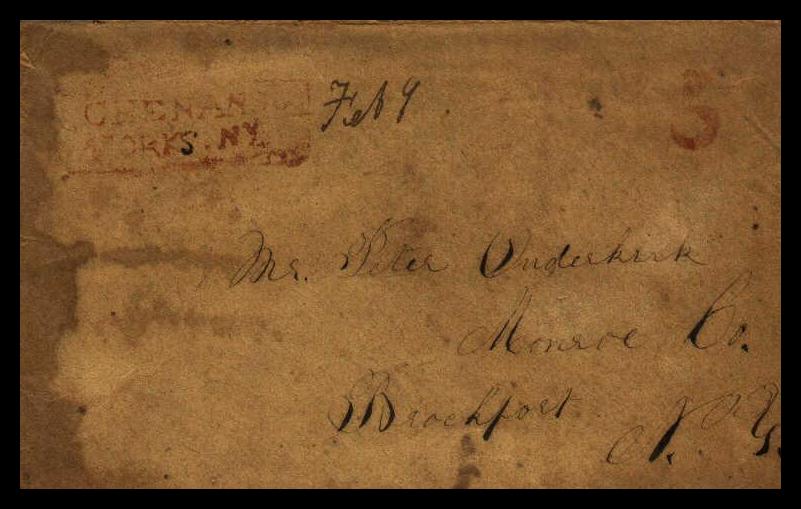 CHENAN
FORKS. NY
Feb 9
5
Mr. Peter Onderkirk
Monroe Co.
Brockport
N. Y.